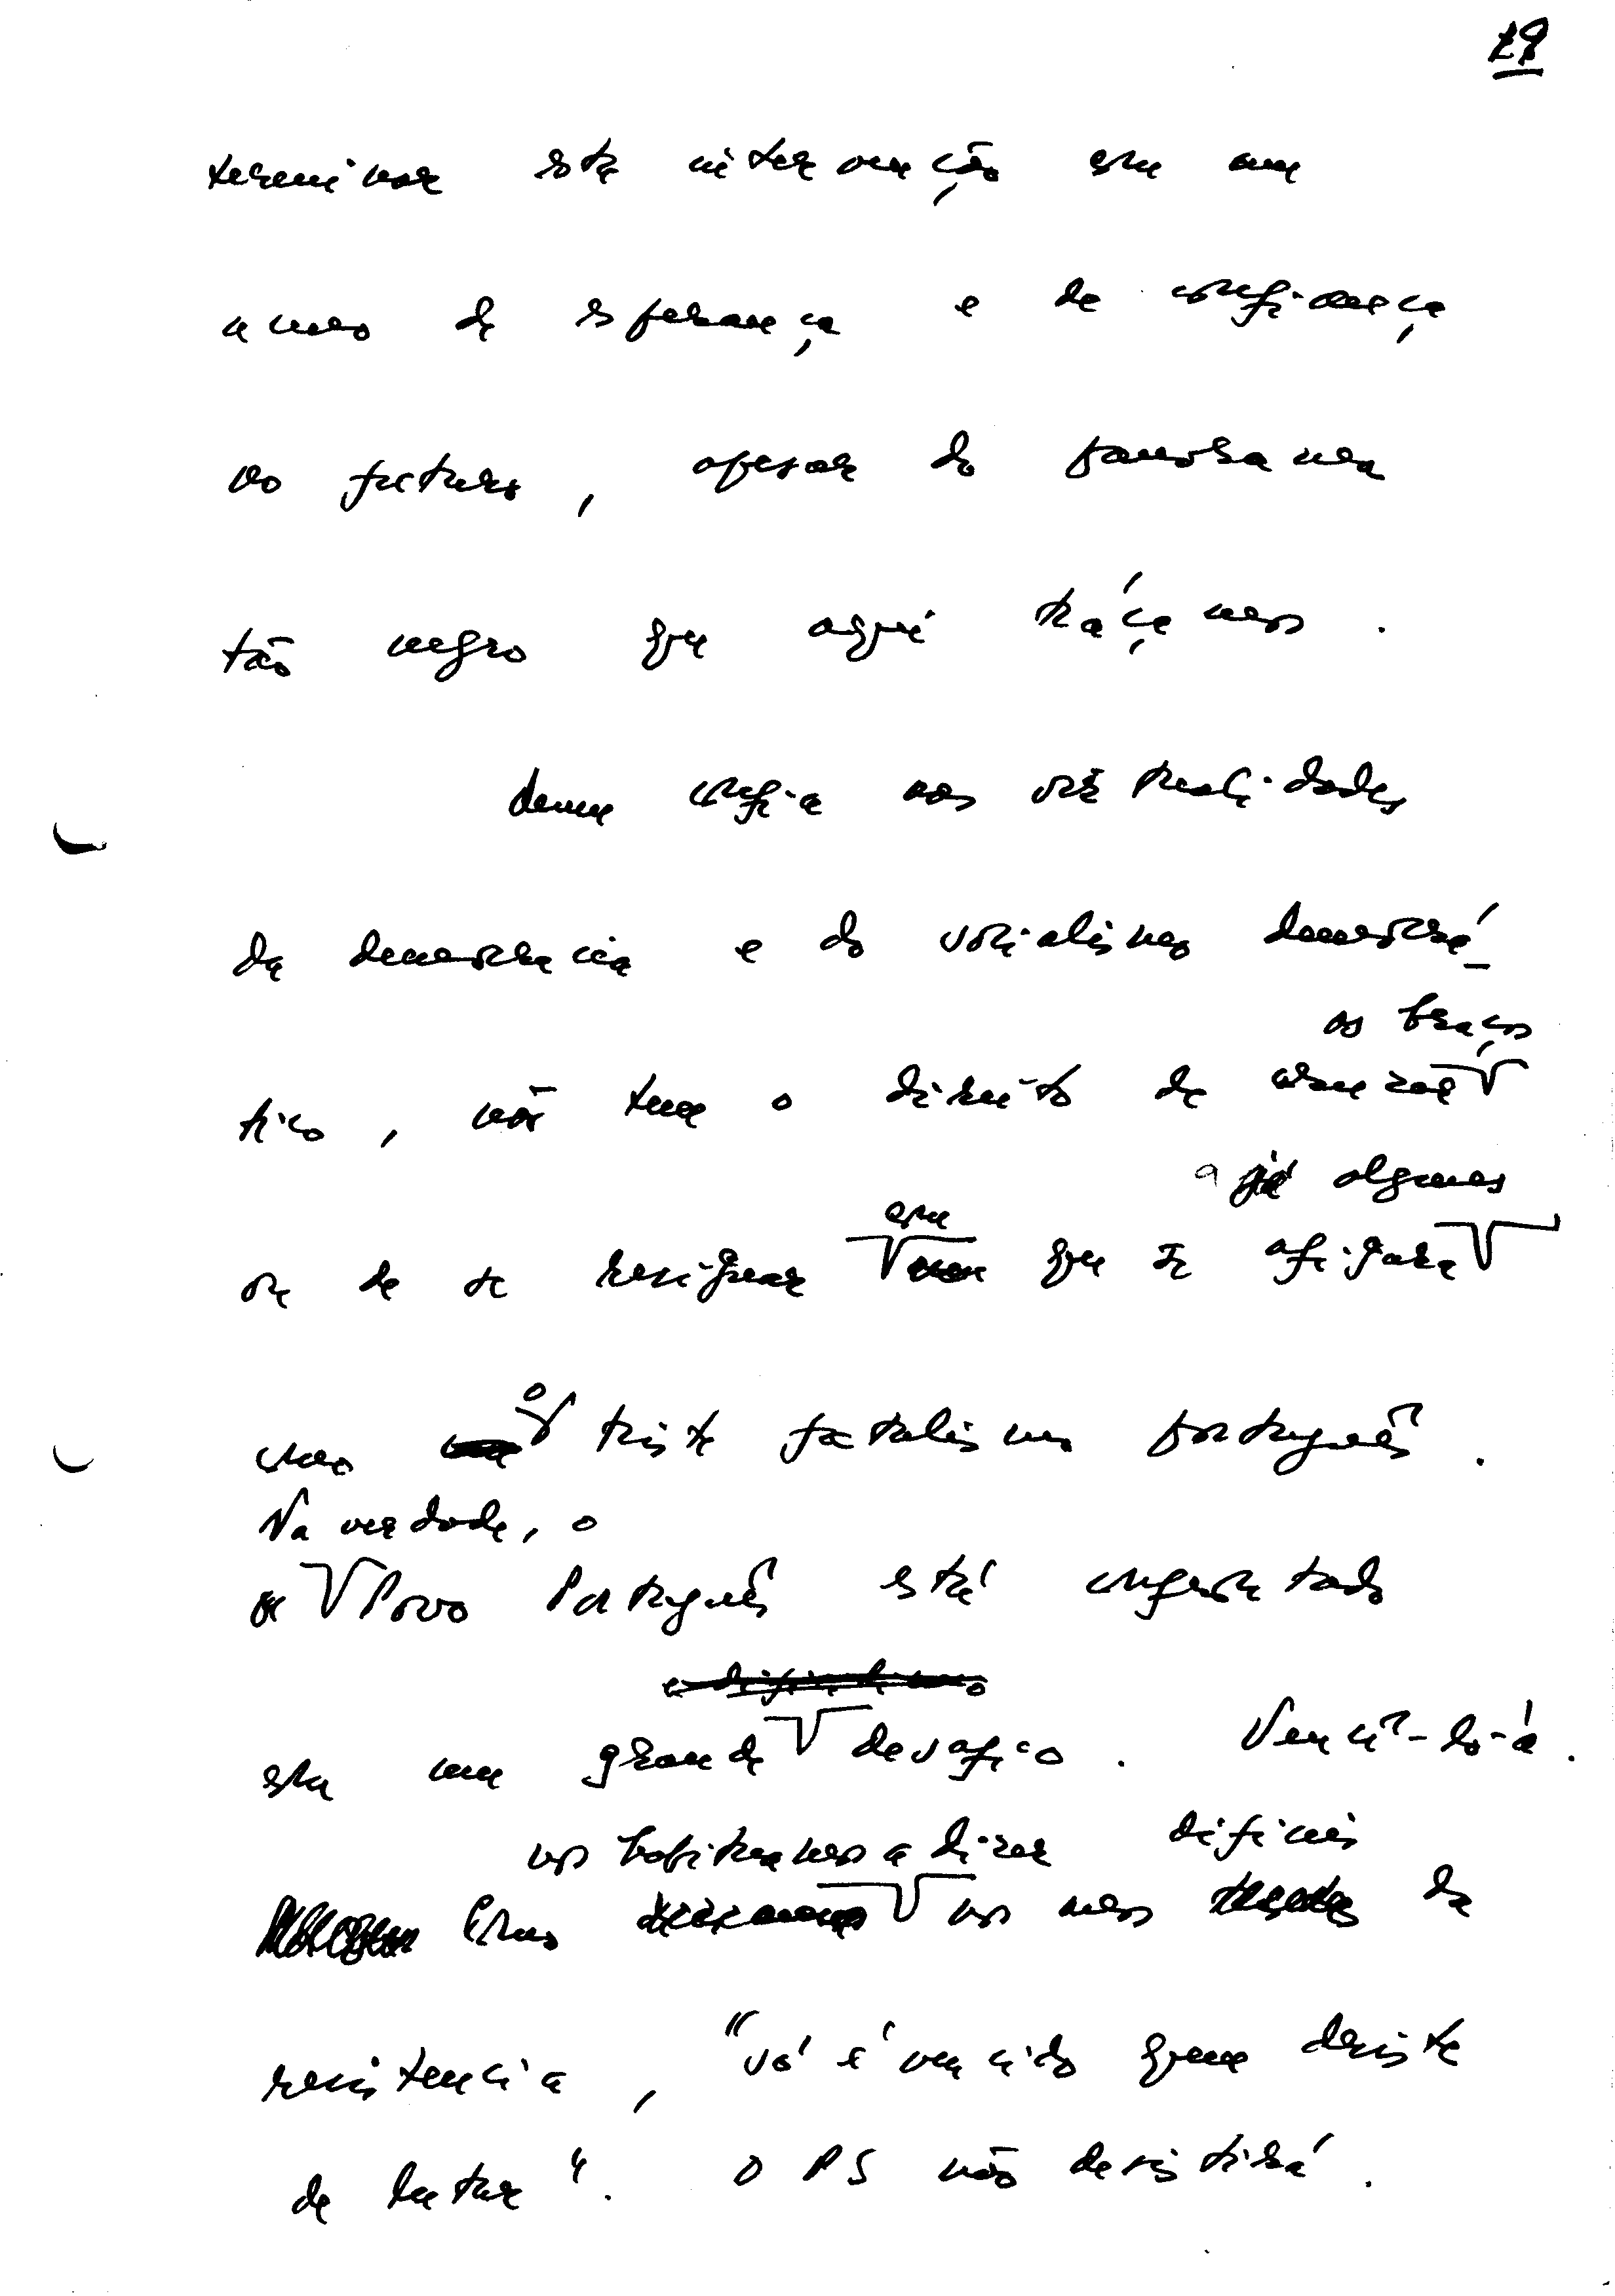 29
terminar esta intervenção com um
aceno de esperança e de confiança
no futuro, apesar do panorama
tão negro que aqui traçámos.
Quem confia nas virtualidades
da democracia e do socialismo democrá-
os braços
tico, não tem o direito de cruzar
a já alguns
com
ou de se resignar que se afigura
o
como triste fatalismo português.
Na verdade, o
o Povo Português está confrontado
com um grande desafio. Vencê-lo-á.
nos habituamos a dizer difíceis
Como nos anos da
resistência, "só é vencido quem desiste
de lutar". O PS não desistirá.